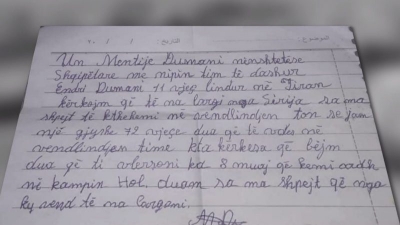 الموضوع: التاريخ: / / ٢٠
Un Mentije Dumani nënshtetëse
Shqipëtare me nipin tim të dashur
Endri Dumani 11 vjeç lindur më Tiran
kërkojm që të na largi nga Sirija sa ma
shpejt të kthehemi në vendlindjen ton se jam
një gjyshe 72 vjeçe dua që të vdes në
vendlindjen time kta kërkesa që bëjm
dua që ti vlersoni ka 8 muaj që kemi
në kampin Hol. duam sa ma shpejt që nga
ky vend të na largoni.